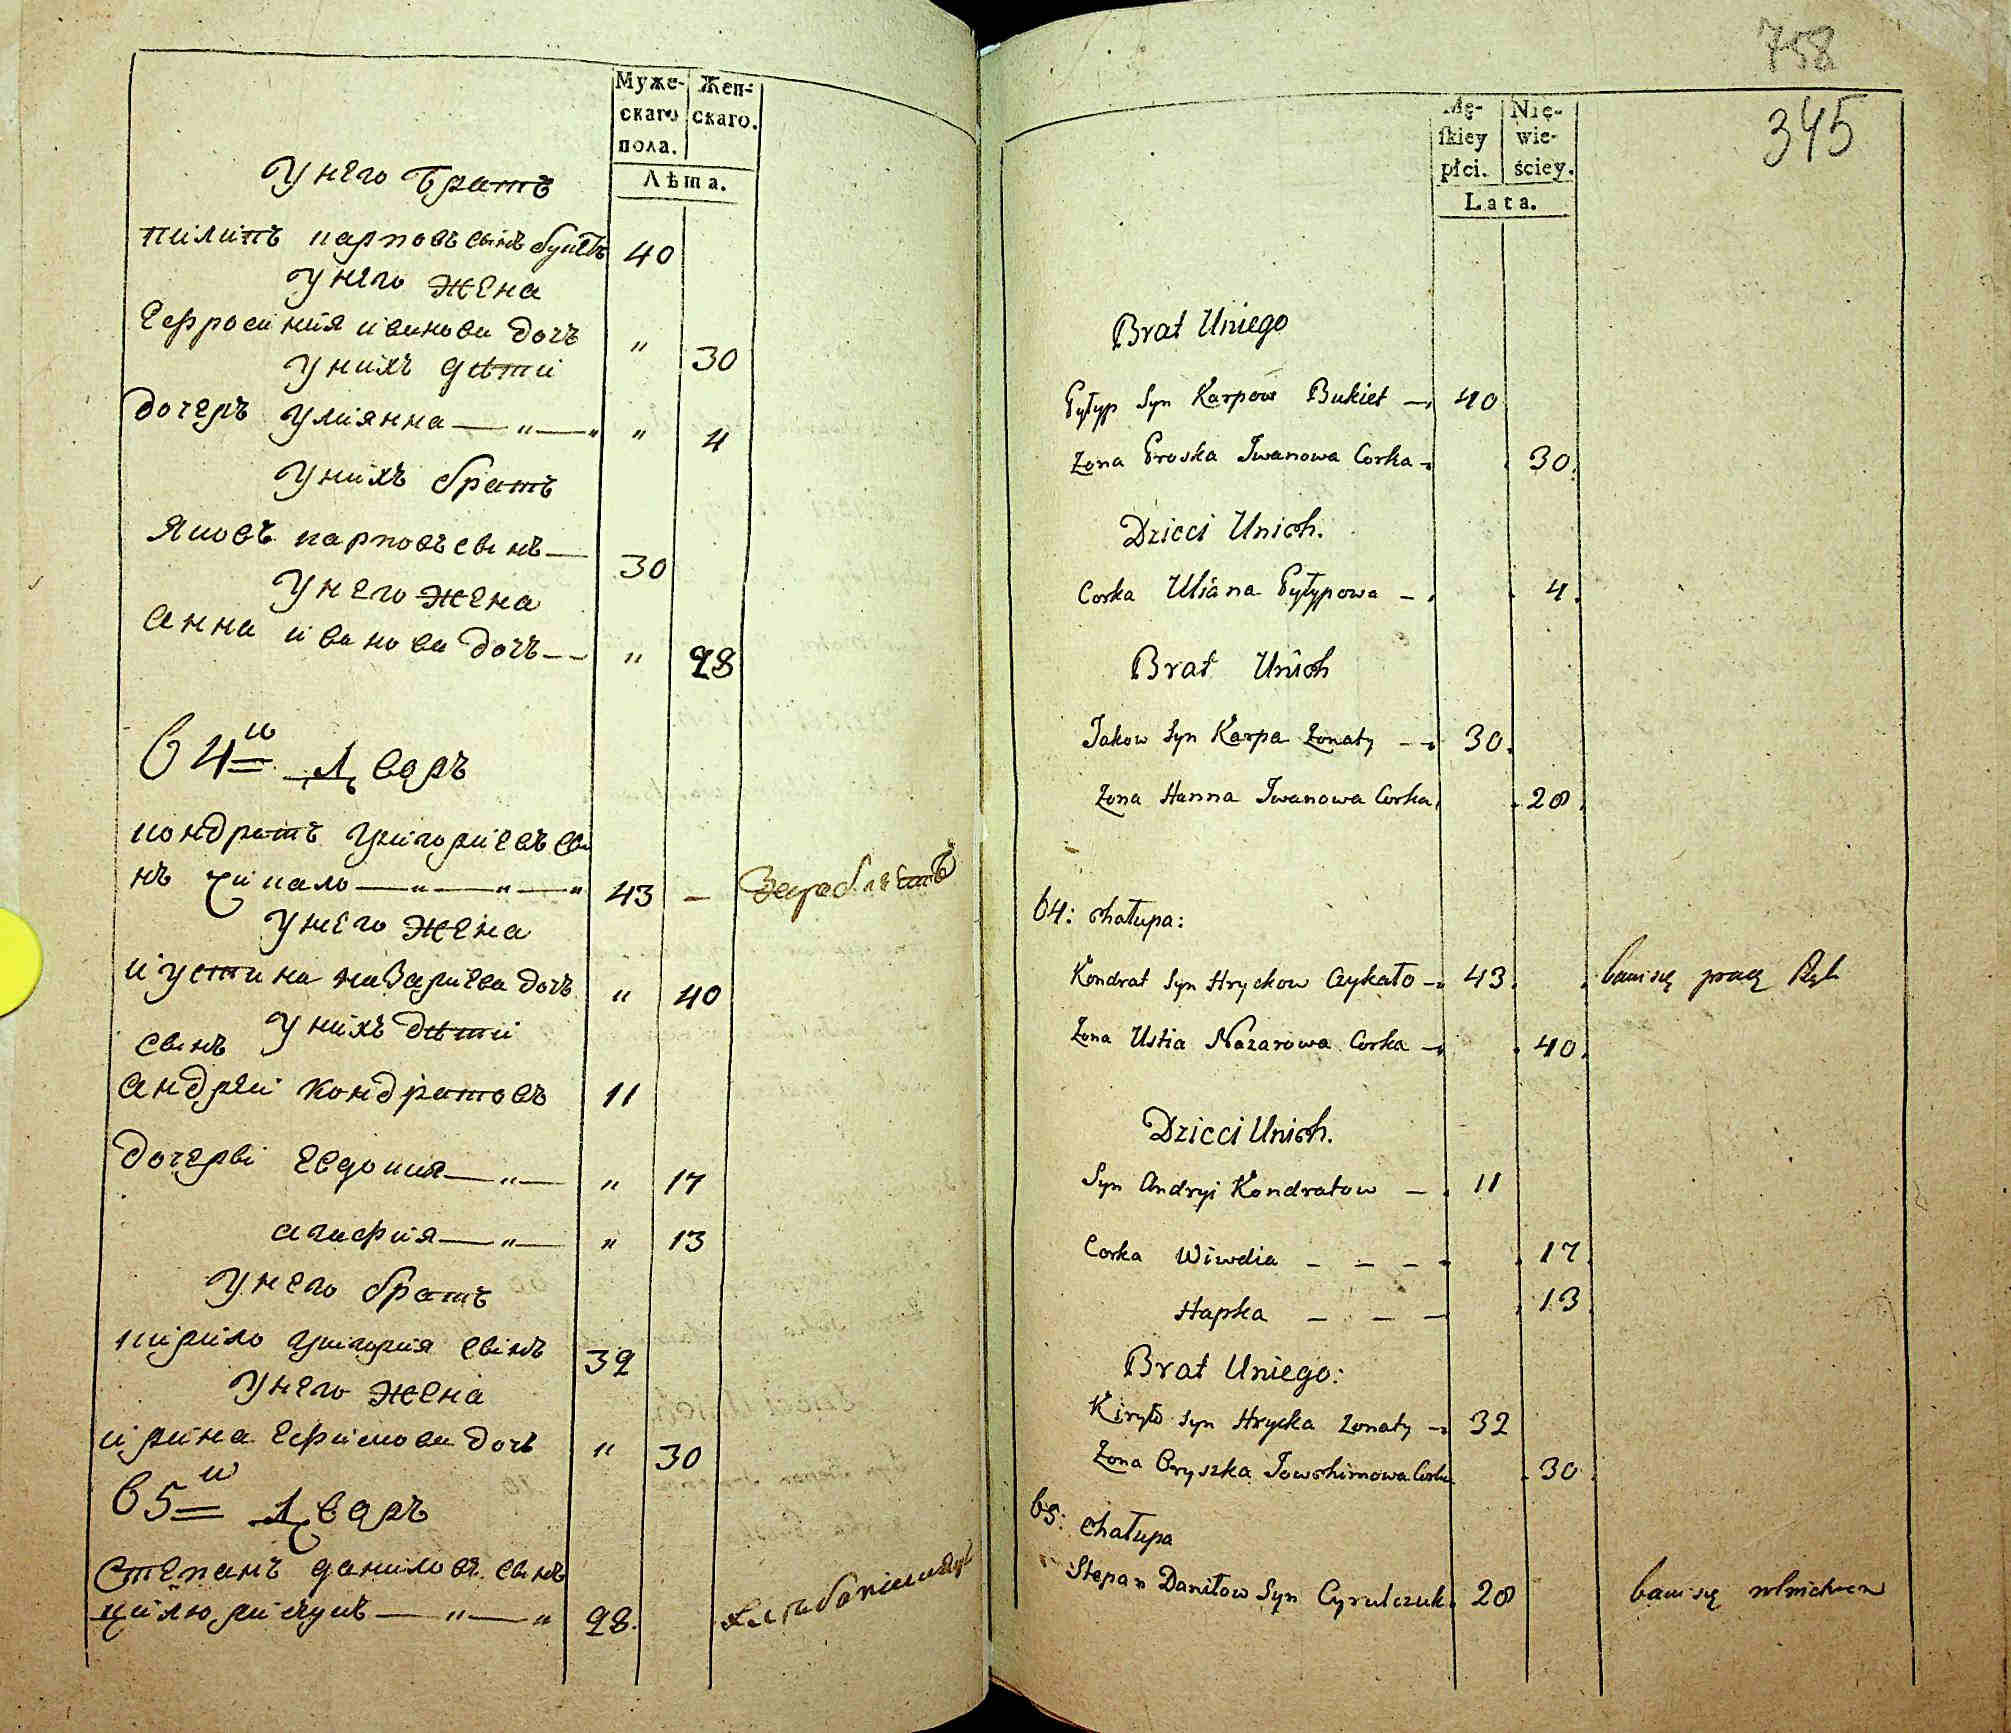 Муже-
скаго
пола.
Жен-
скаго.
Лѣта.
У него братъ
пилипъ карповъ сынъ букетъ 40
У него жена
Ефросиния иванова дочъ " 30
У нихъ дѣти
дочеръ улиянна — " — " " 4
У нихъ братъ
Яковъ карповъ сынъ — 30
У него жена
Анна иванова дочъ — " 28
в 4и дворъ
кондратъ григориевъ сы
нъ чикало — " — " — " 43 –
У него жена
иустина назариева дочъ " 40
У нихъ дѣти
сынъ
андрей кондратовъ 11
дочерѣ евдокия — " — " 17
агафия — " — " 13
У него братъ
кирило григория сынъ 32
У него жена
ирина ефимова дочъ " 30
в 5и дворъ
степанъ даниловъ сынъ
цилюричукъ — " — " 28.
758
345
Mę-
skiey
płci.
Nie-
wie-
ściey.
Lata.
Brat Uniego
Pyłyp Syn Karpow Bukiet — 40
Zona Proska Iwanowa Corka — 30.
Dzieci Unich.
Corka Uliana Pyłypowa — 4.
Brat Unich
Jakow Syn Karpa Zonaty — 30.
Zona Hanna Iwanowa Corka 28.
b4: chałupa:
Kondrat Syn Hryckow Czykało — 43. bawi się pracą
Zona Ustia Nazarowa Corka — 40.
Dzieci Unich.
Syn Andryi Kondratow — 11
Corka Wiwdia – – – 17.
Hapka – – – 13.
Brat Uniego:
Kiryło Syn Hrycka Zonaty — 32
Zona Oryszka Jowchimowa Corka 30.
b5: chałupa
Stepan Daniłow Syn Cyrulczuk. 28 bawi się